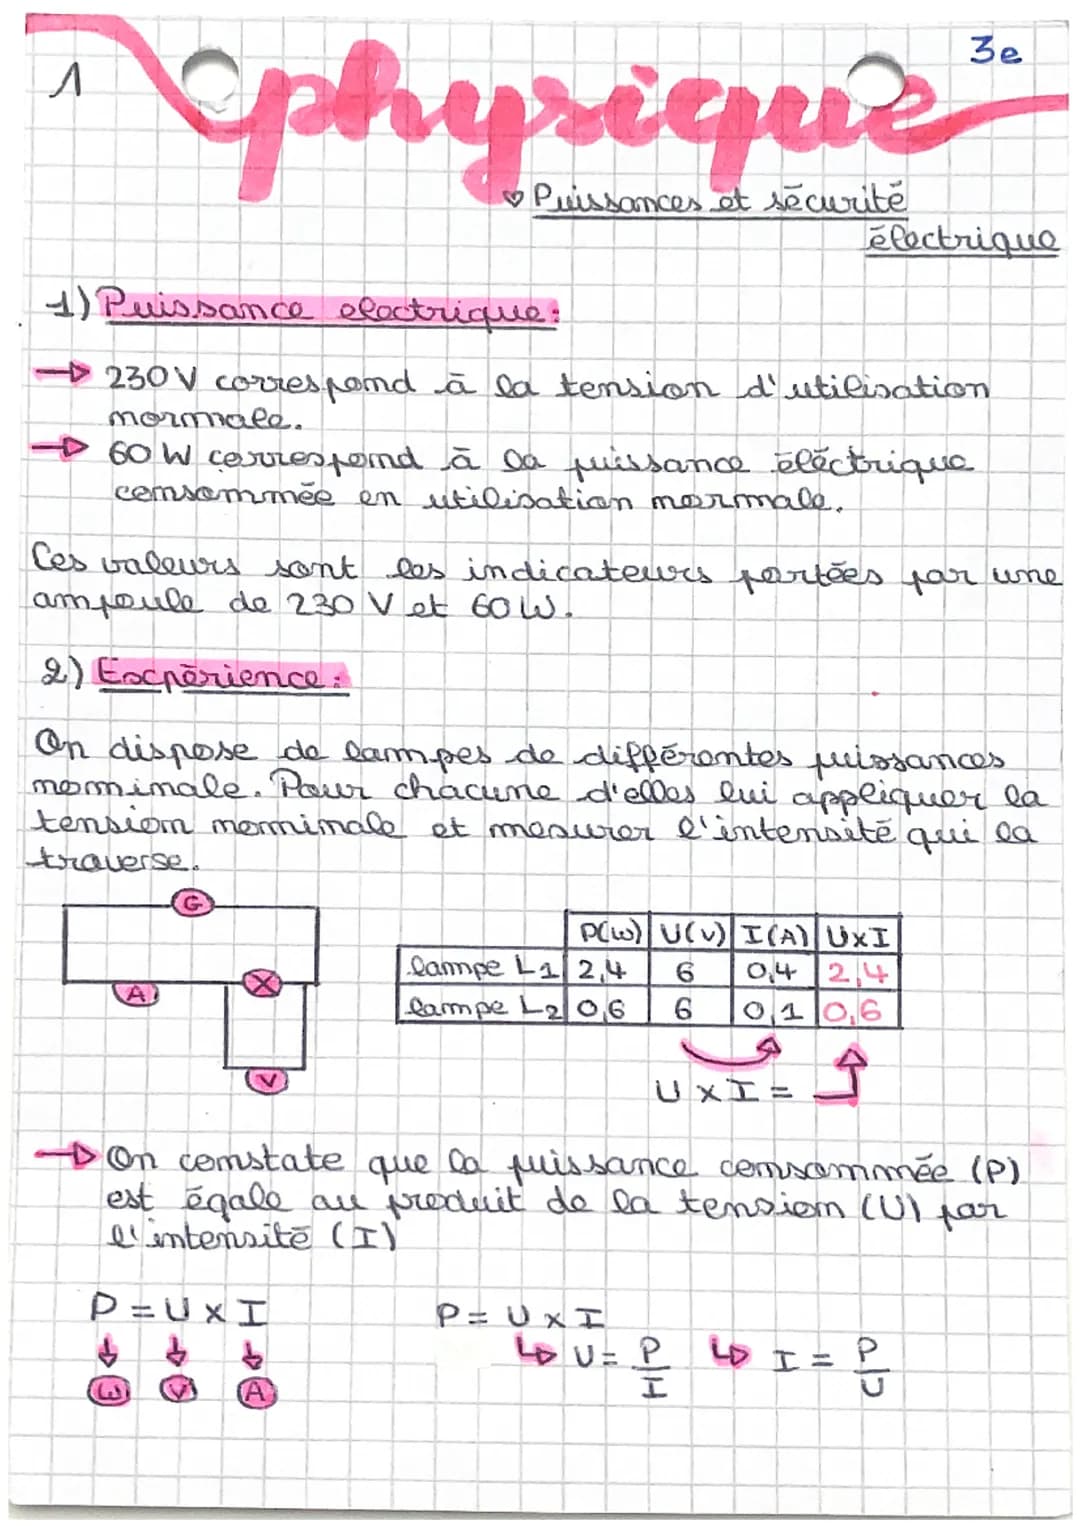 1
3e
physique
♡ Puissances et sécurité
électrique
1) Puissance electrique:
→ 230 V correspond à la tension d'utilisation
normale.
→ 60 W correspond à la puissance éléctrique
consommée en utilisation normale.
Ces valeurs sont les indicateurs portées par une
ampoule de 230 V et 60 W.
2) Expérience:
On dispose de lampes de différentes puissances
nominale. Pour chacune d'elles lui appliquer la
tension nominale et mesurer l'intensité qui la
traverse.
G
A
X
V
P(W) U(V) I(A) UxI
lampe L1 2,4 6 0,4 2,4
lampe L2 0,6 6 0,1 0,6
U x I =
→ On constate que la puissance consommée (P)
est égale au produit de la tension (U) par
l'intensité (I)
P = U x I
W V A
P = U x I
↳ U = P/I ↳ I = P/U